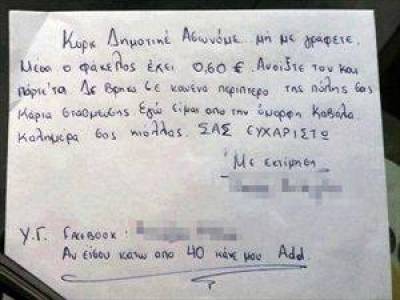 Κύριε Δημοτικέ Αστυνόμε.. μη με γράφετε.
Μέσα ο φάκελος έχει 0,60 €. Ανοίξτε τον και
πάρτε'τα Δε βρήκα σε κανένα περίπτερο της πόλης σας
Κάρτα στάθμευσης. Εγώ είμαι από την όμορφη Καβάλα.
Καλημέρα σας κιόλλας. ΣΑΣ ΕΥΧΑΡΙΣΤΩ
Με εκτίμηση
Υ.Γ. Facebook :
Αν είσαι κάτω από 40 κάνε μου Add.